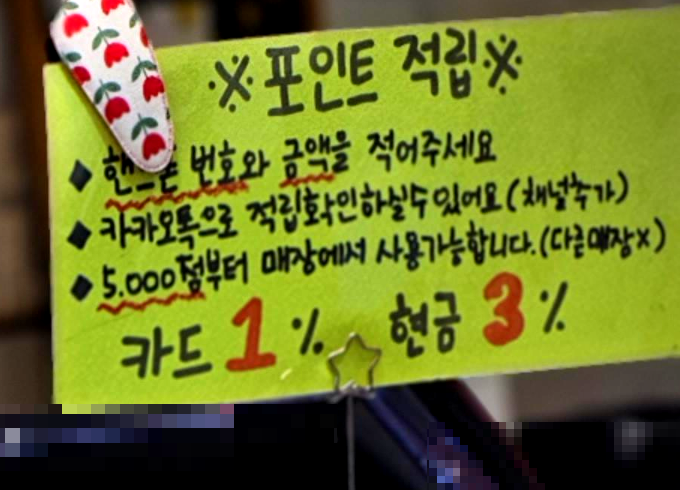 ※포인트 적립※
◆ 핸드폰 번호와 금액을 적어주세요
◆ 카카오톡으로 적립확인하실수있어요(채널추가)
◆ 5.000점부터 매장에서 사용가능합니다.(다른매장x)
카드 1% 현금 3%